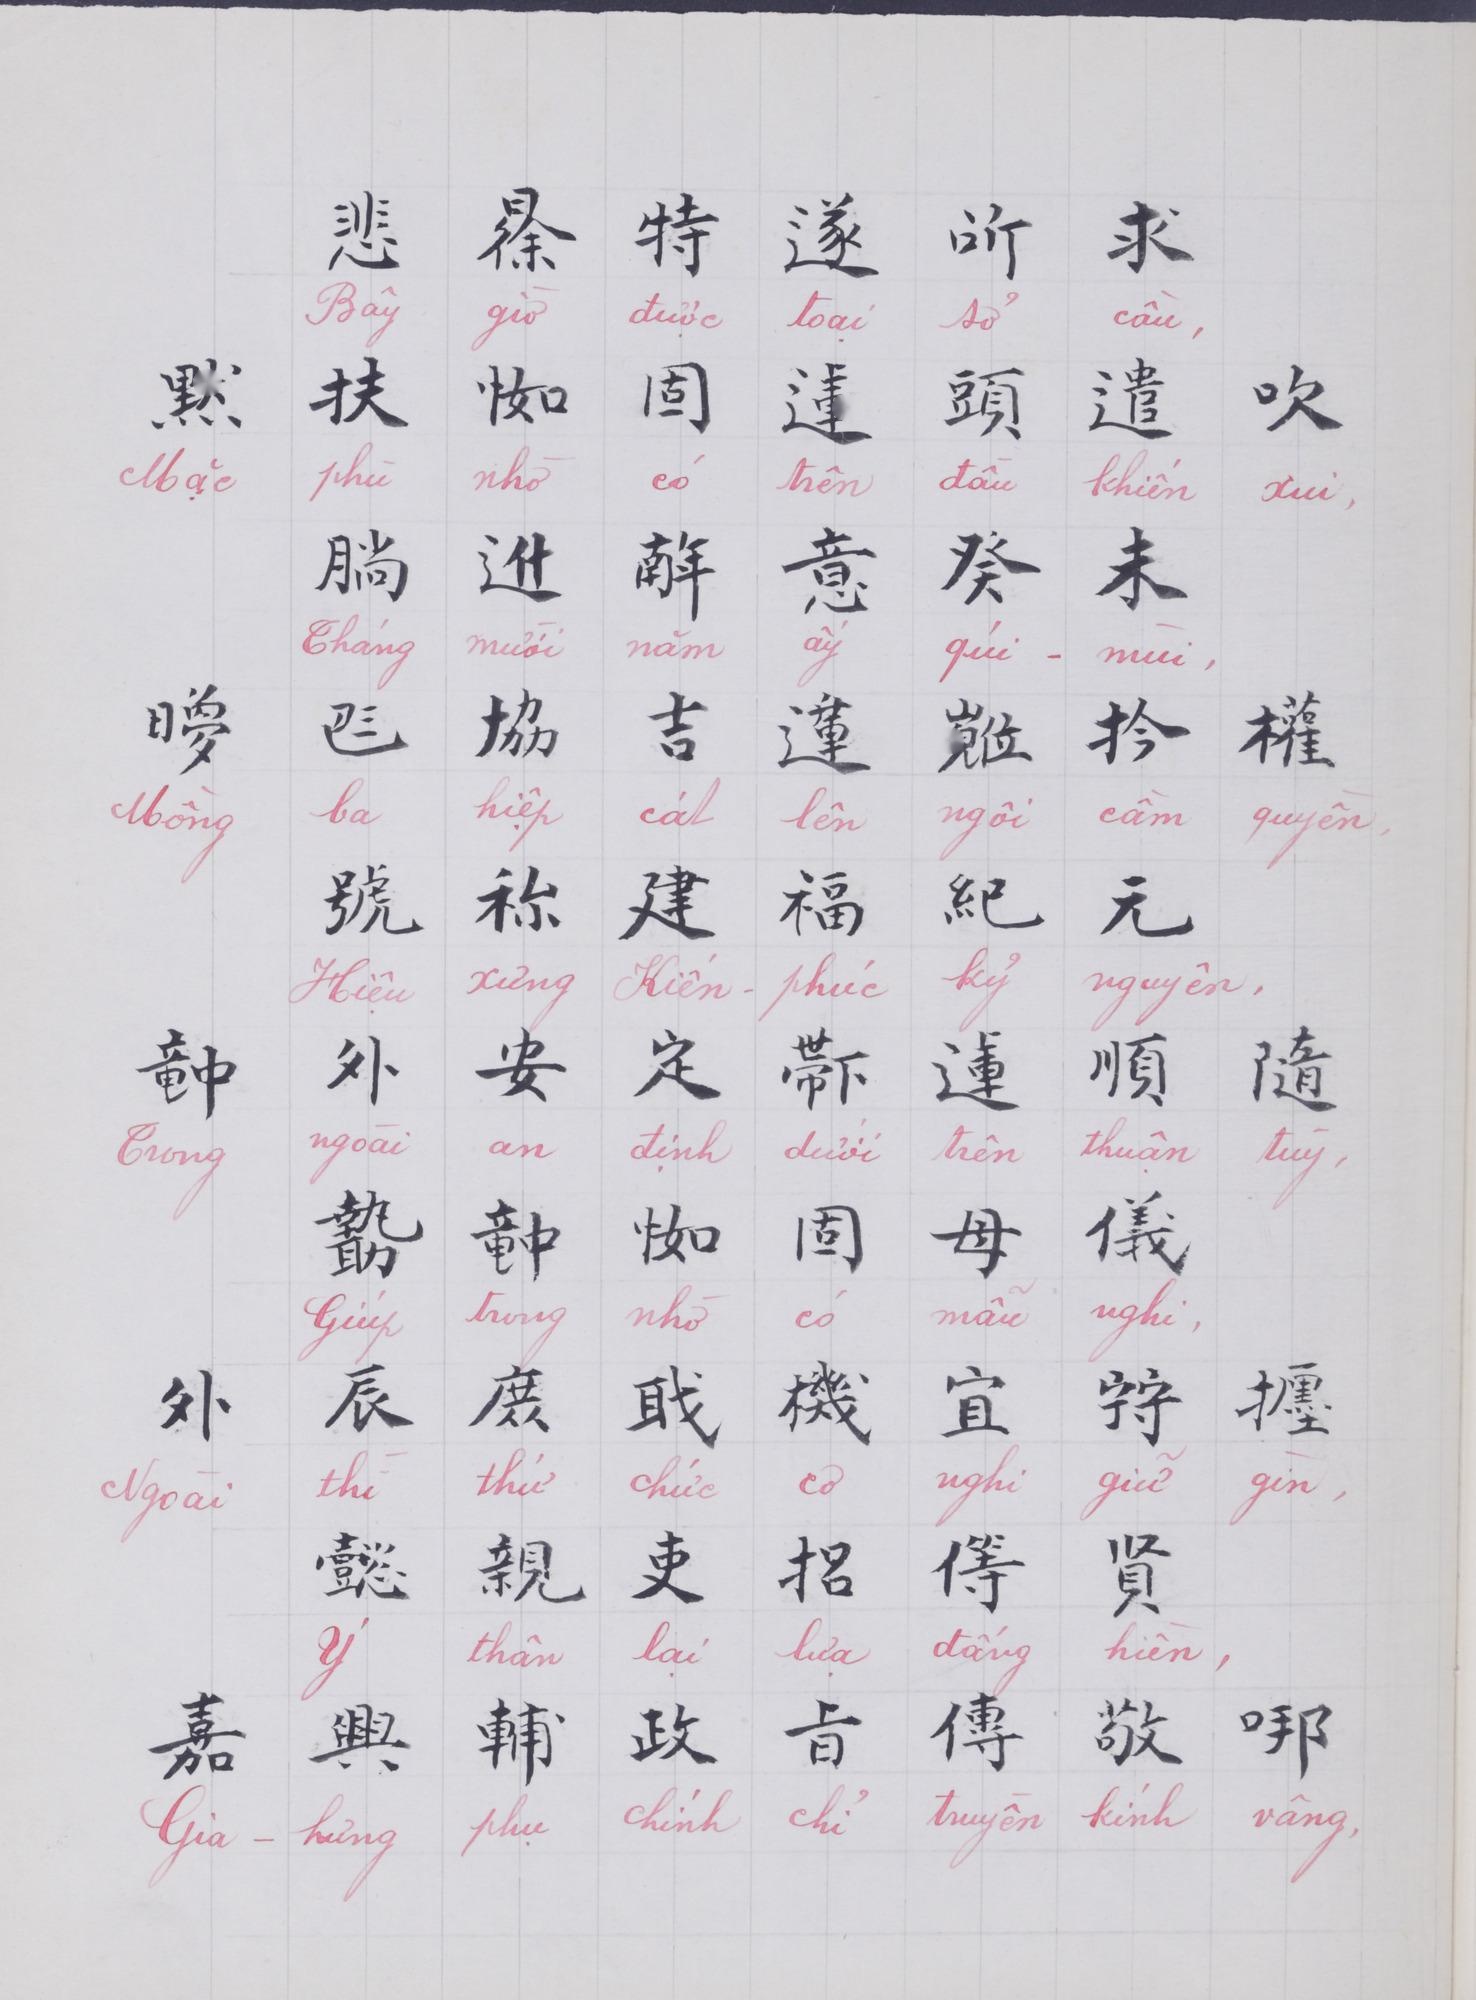 悲 𣇞 特 遂 所 求
Bây giờ được toại sở cầu,
默 扶 𢘾 固 𨕭 頭 遣 吹
Mặc phù nhờ có trên đầu khiến xui,
𣎃 𨒒 𢆥 意 癸 未
Tháng mười năm ấy qúi - mùi,
𣋽 𠀧 協 吉 𨖲 𡾵 扲 權
Mồng ba hiệp cát lên ngôi cầm quyền,
號 称 建 福 紀 元
Hiệu xưng Kiến - phúc kỷ nguyên,
𥪝 外 安 定 𨑜 𨕭 順 隨
Trong ngoài an định dưới trên thuận tùy,
𠢞 𥪝 𢘾 固 母 儀
Giúp trong nhờ có mẫu nghi,
外 辰 庶 職 機 宜 𡨺 㨙
Ngoài thì thứ chức cơ nghi giữ gìn,
懿 親 吏 招 䓁 賢
Ý thân lại lựa đấng hiền,
嘉 興 輔 政 旨 傳 敬 㖫
Gia - hưng phụ chính chỉ truyền kính vâng,